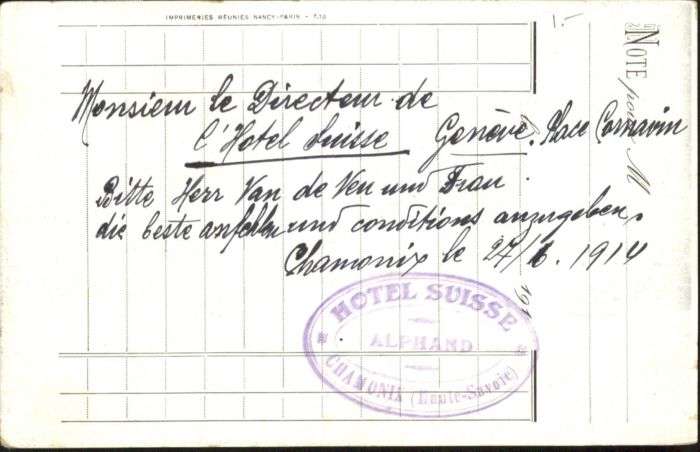 IMPRIMERIES RÉUNIES NANCY-PARIS -
1.-
NOTE pour M
Monsieur le Directeur de
l'Hotel Suisse Genève. Place Cornavin
Bitte Herr Van de Ven und Frau
die beste und conditions anzugeben.
Chamonix le 27/6. 1914
191
HOTEL SUISSE
ALPHAND
CHAMONIX (Haute-Savoie)